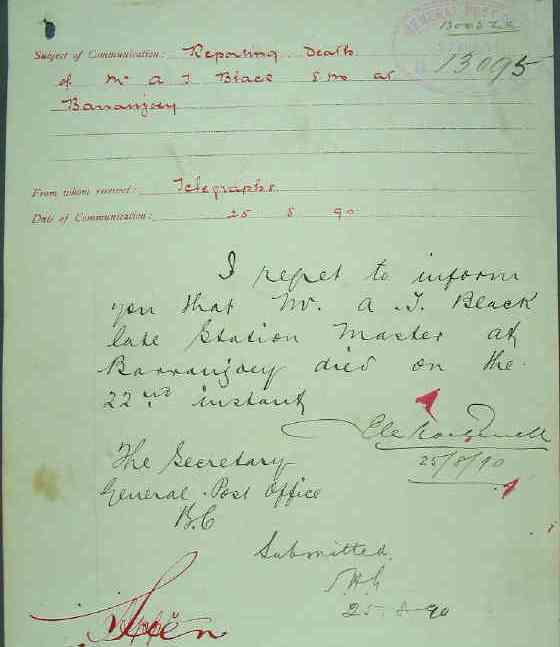 Boodle
GENERAL POST
13095
Subject of Communication: Reporting death
of Mr A J Black S M at
Barranjoey
From whom received: Telegraphs
Date of Communication: 25 8 90
I regret to inform
you that Mr. A. J. Black
late Station Master at
Barranjoey died on the
22nd instant
25/8/90
The Secretary
General Post Office
B.C
Submitted.
25-8-90
Seen